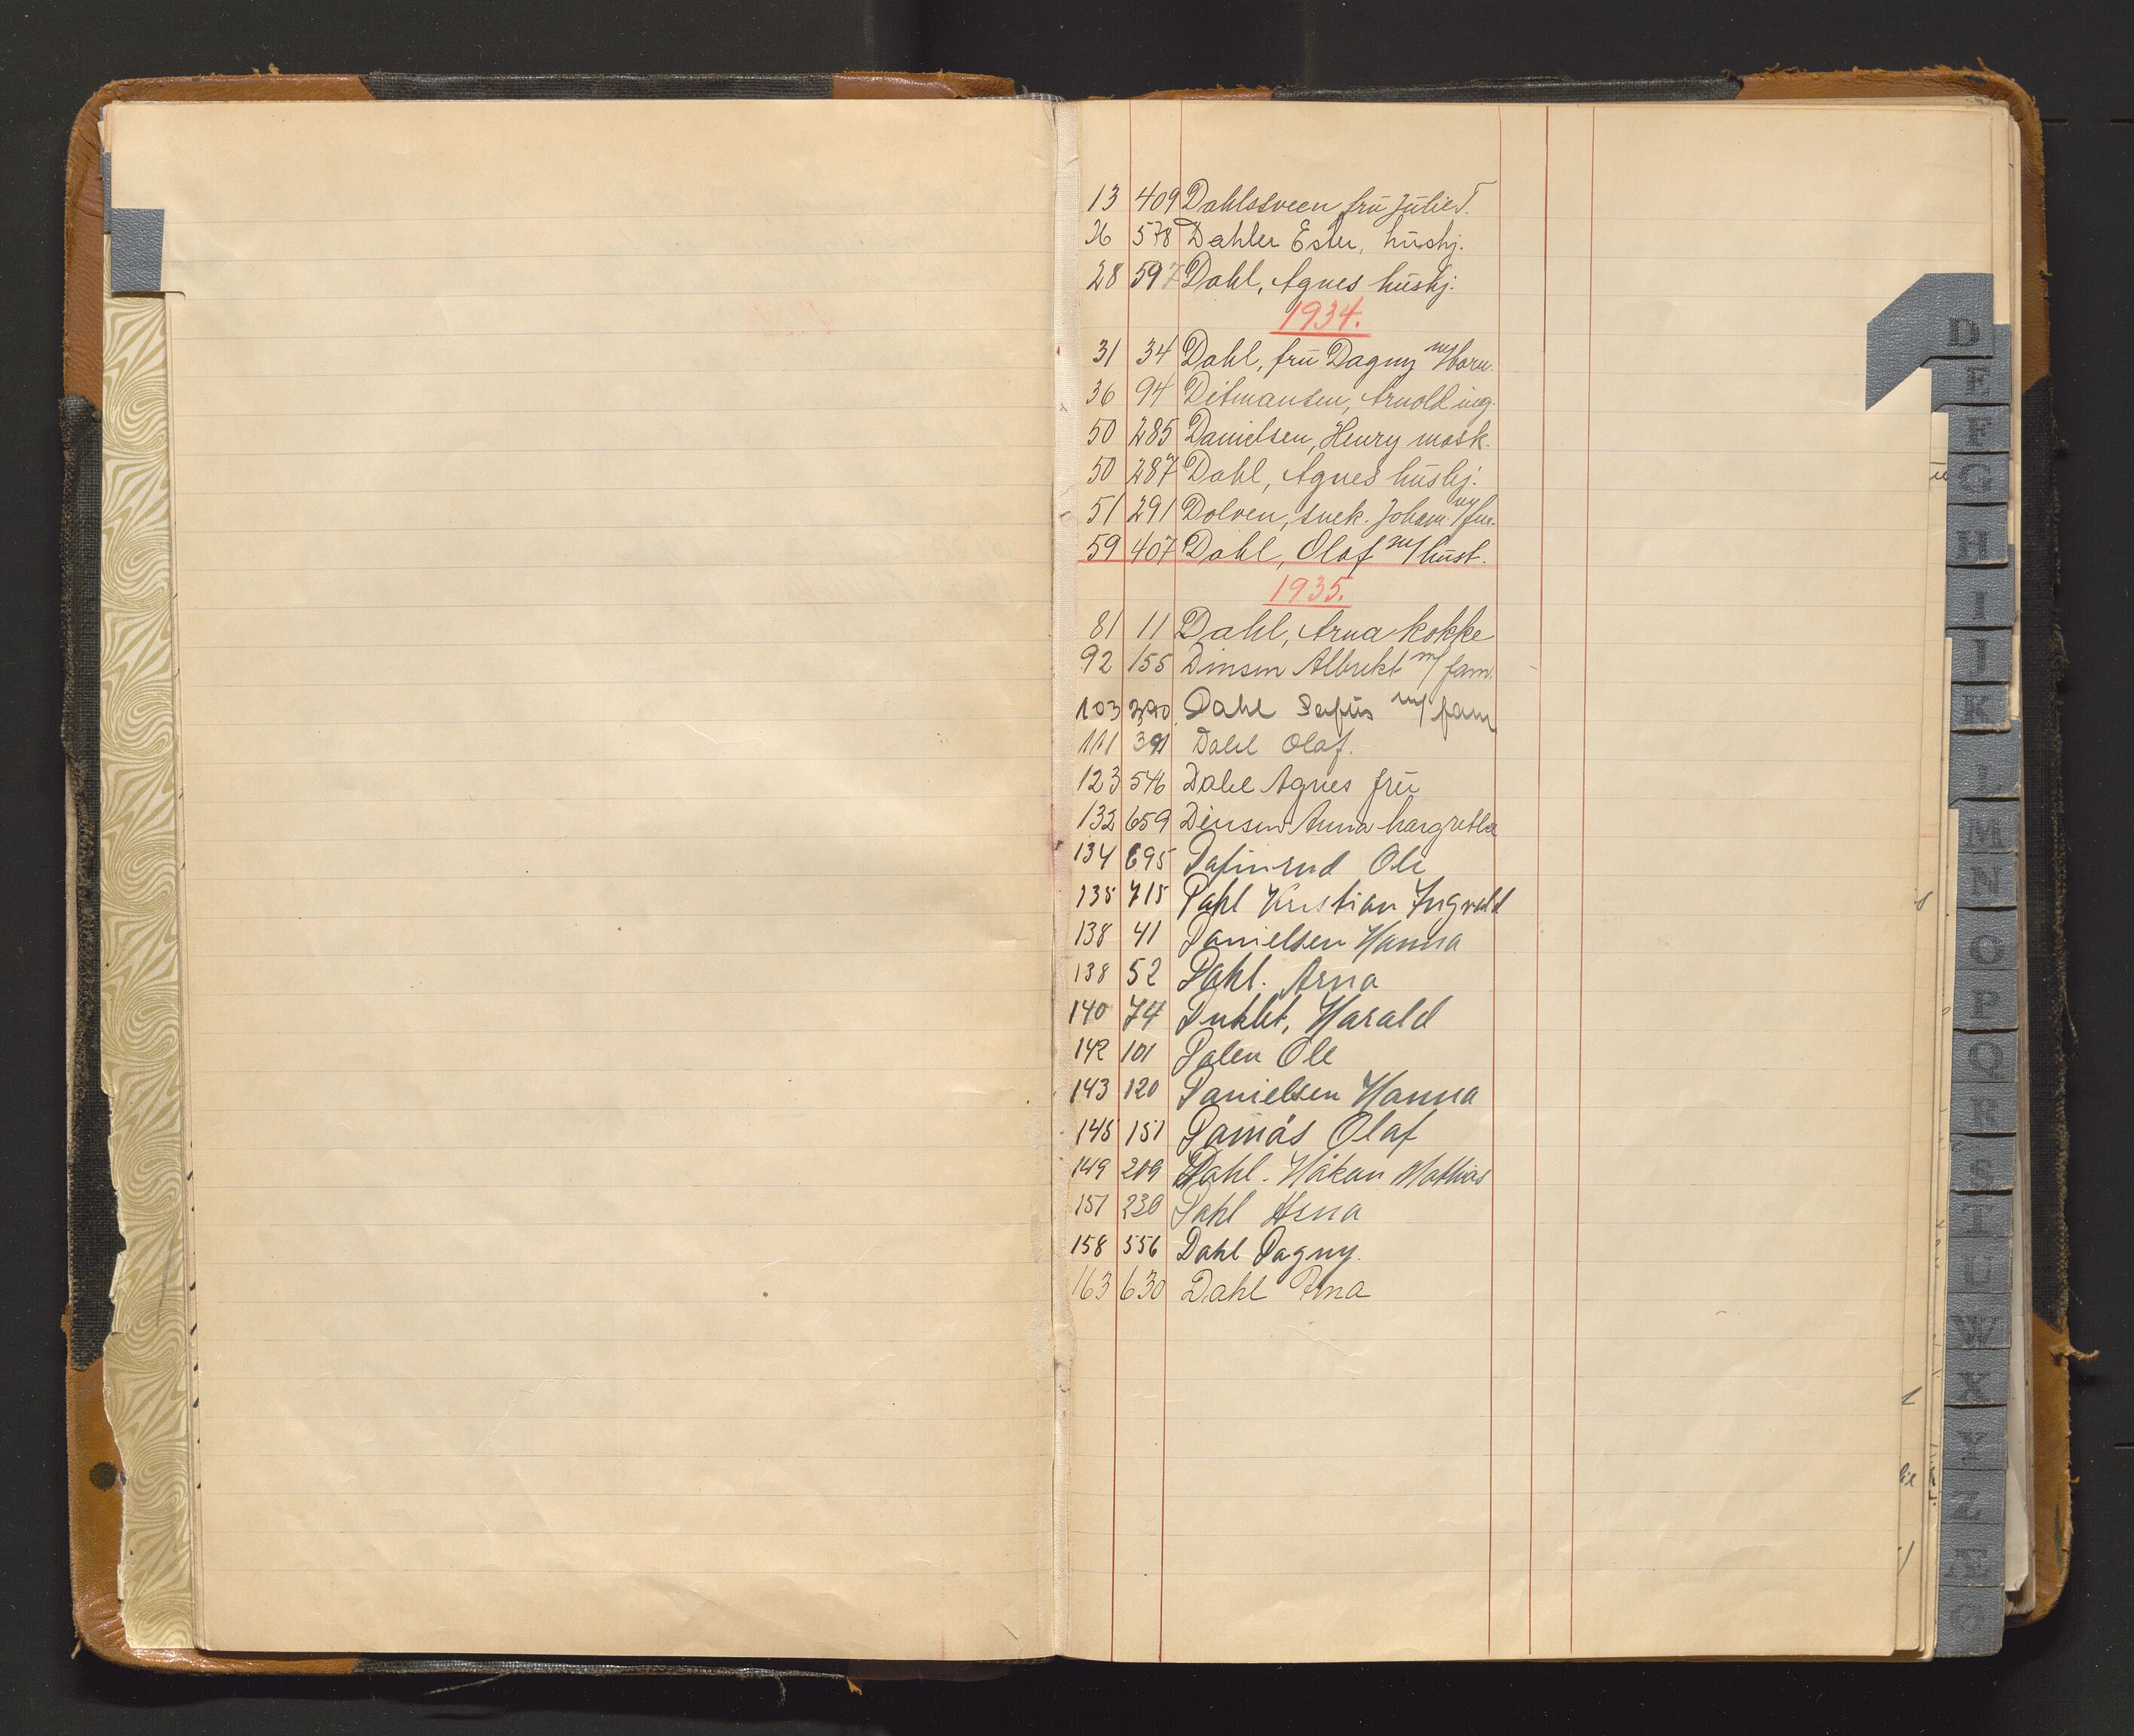 13 409 Dahlsveen, frū Jūlie T.
26 578 Dahler Ester, hūshj.
28 597 Dahl, Agnes hūshj.
1934.
31 34 Dahl, frū Dagny m/barn.
36 94 Ditmansen, Arnold ing.
50 285 Danielsen, Henry mask.
50 287 Dahl, Agnes hūshj.
51 291 Dolven, snek. Johan m/fm.
59 407 Dahl, Olaf m/hūst.
1935.
81 11 Dahl, Arna kokke
92 155 Dinsen Albrekt m/fam.
103 Dahl m/fam
111 391 Dahl Olaf.
123 546 Dahl Agnes frū
132 659 Dinsen Anna Margretha
134 695 Dafinrud Ole
135 715 Dahl Kristian Ingvald
138 41 Danielsen Hanna
138 52 Dahl. Arna
140 74 Harald
142 101 Dalen Ole
143 120 Danielsen Hanna
145 151 Damås Olaf
149 209 Dahl. Håkan Mathias
151 230 Dahl Arna
158 556 Dahl Dagny.
163 630 Dahl Arna
D
E
F
G
H
I
J
K
L
M
N
O
P
Q
R
S
T
U
W
X
Y
Z
Æ
Ø